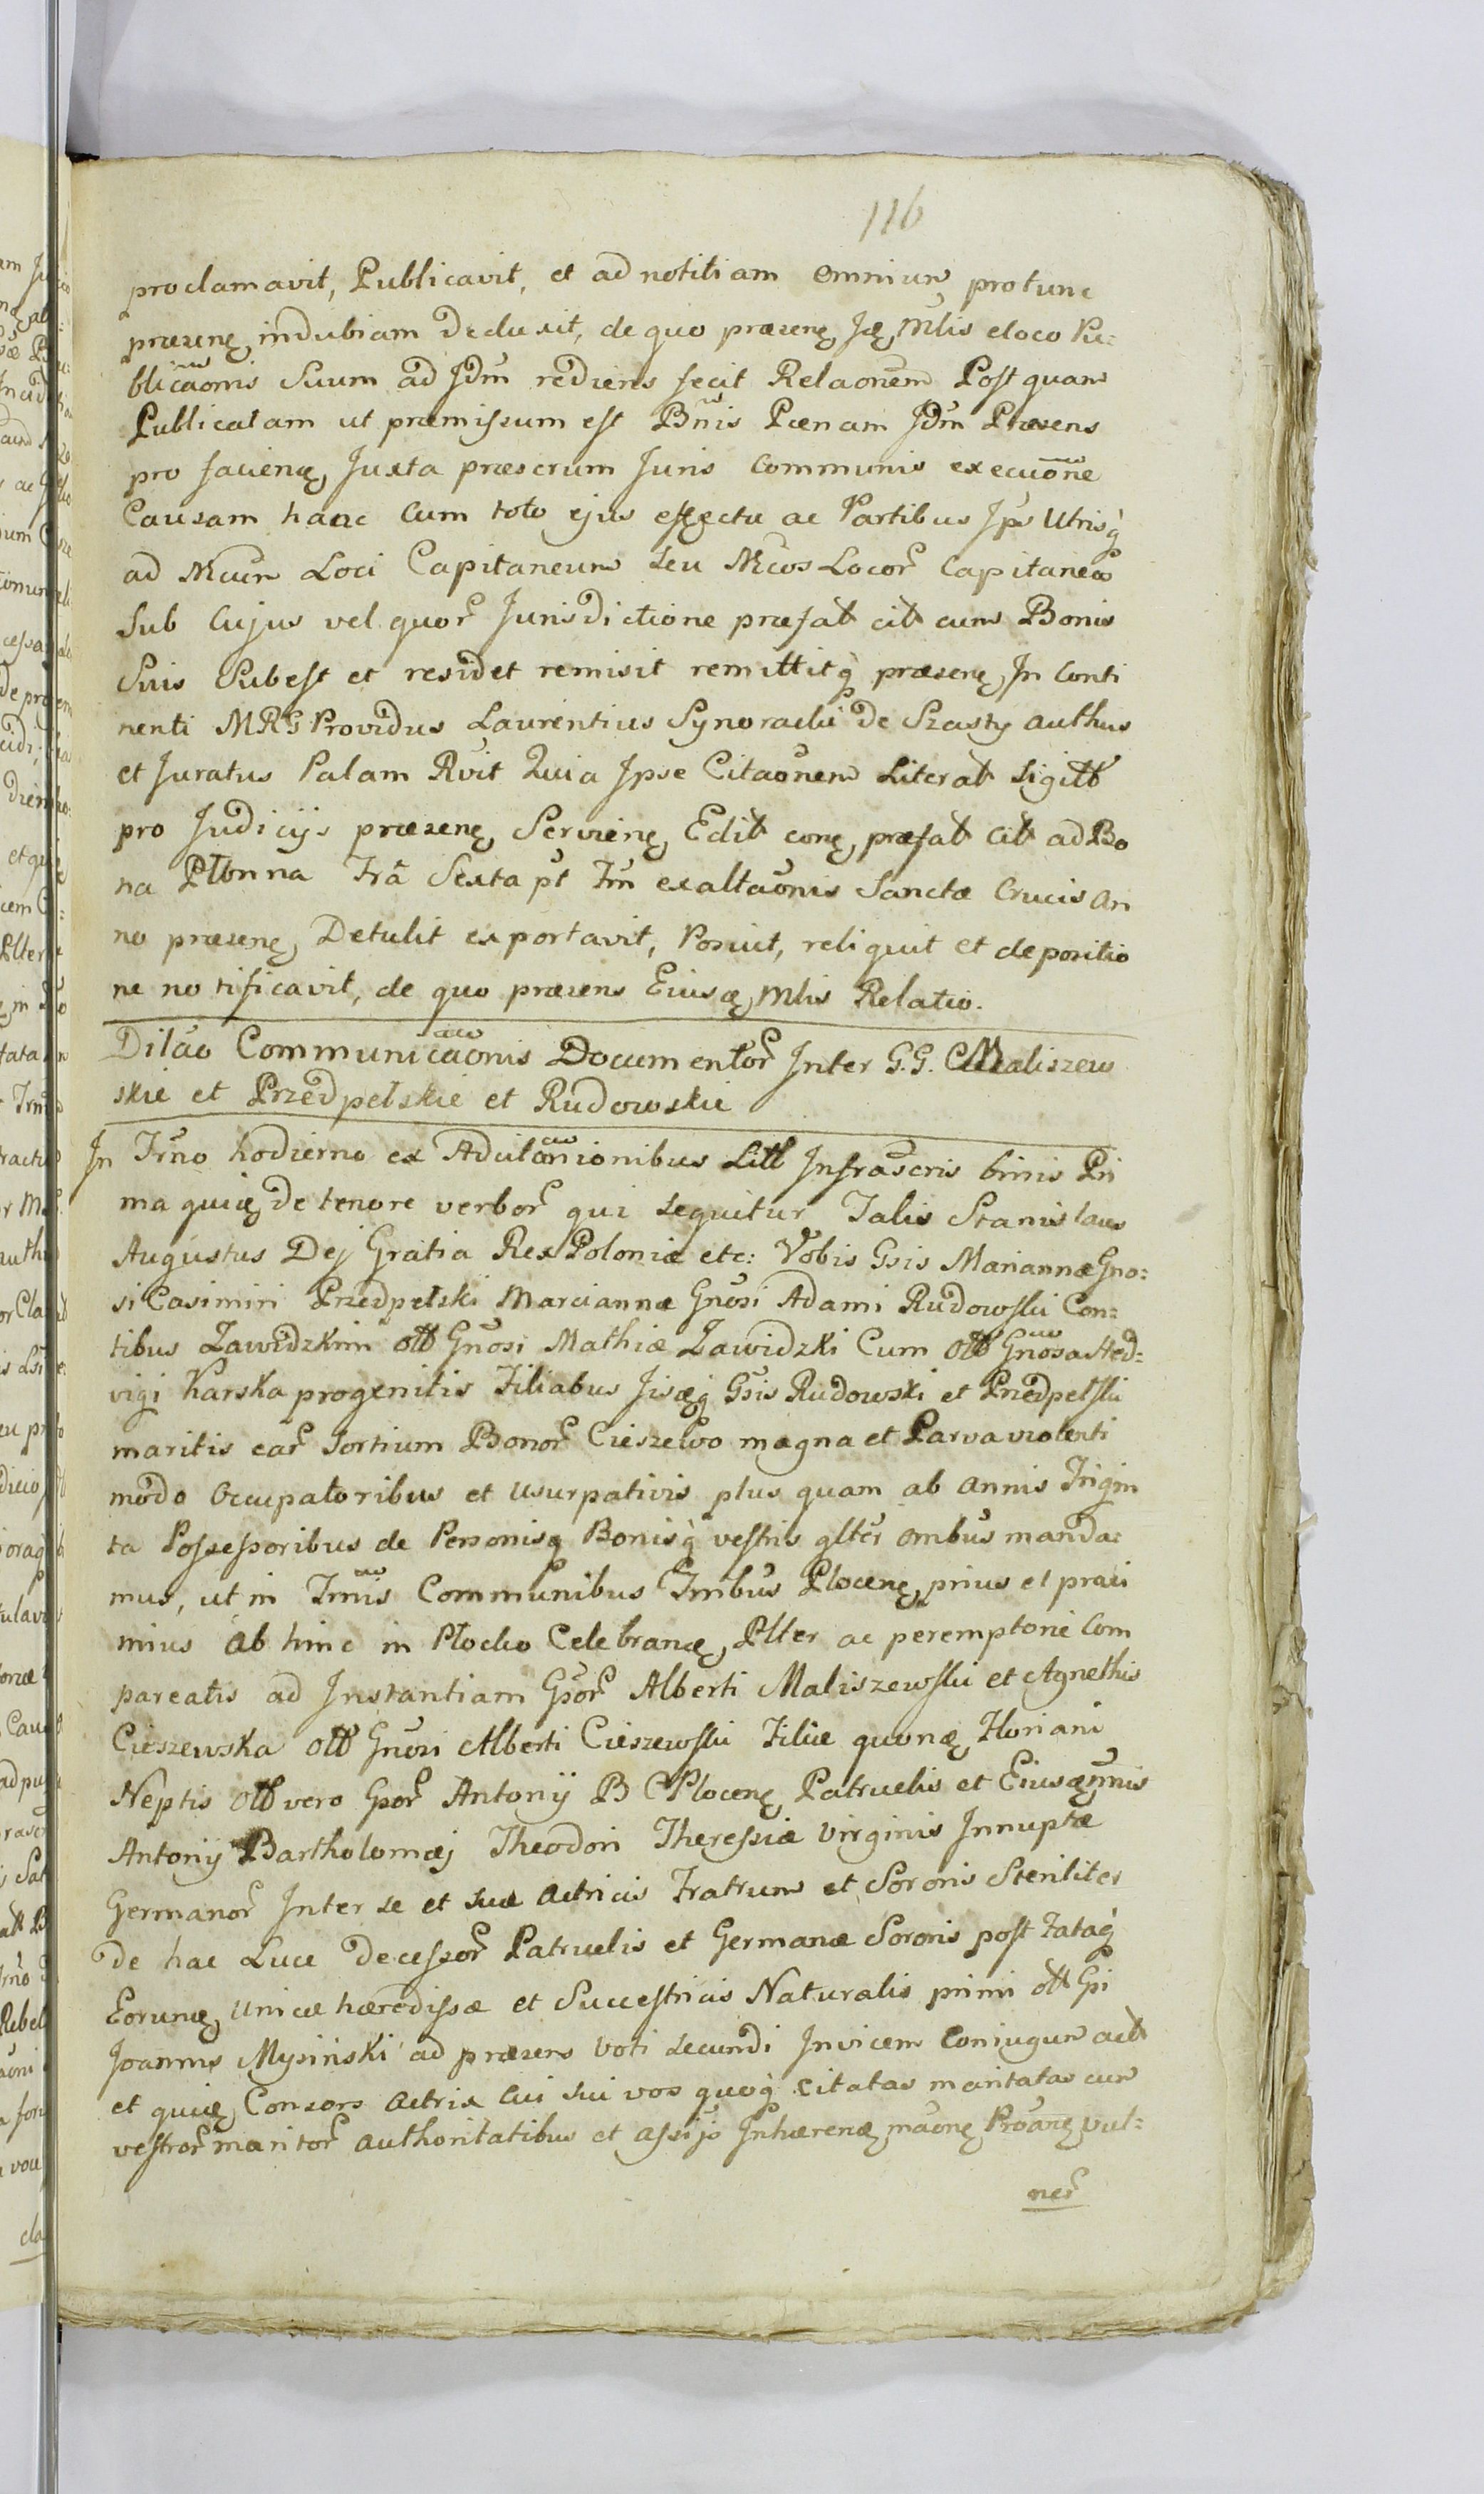 116
proclamavit, Publicavit, et ad notitiam omnium protunc
præsenę indubiam deduxit, de quo præsenę Ję Mlis eloco Pu:
blicaonis Suum ad Jdm rediens fecit Relaonem Post quam
Publicatam ut præmissum est Bnis Pænam Jdm Præsens
pro facienę Juxta præscrum Juris Communis execuone
Causam hanc Cum toto ejus effectu ac Partibus Jps Utrisq
ad Mcum Loci Capitaneum seu Mcos Locor Capitaneos
Sub Cujus vel quor Jurisdictione præfat cit cum Bonis
Suis Subest et residet remisit remittitq præsenę Jn Conti
nenti MRG Providus Laurentius Synoracki de Szasty authus
et Juratus Palam Rvit Quia Jpse Citaonem Literat Sigitt
pro Judicijs præsenę Servienę Edit conę præfat Cit ad Bo
na Płonna Fra Sexta pt Fm exaltaonis Sanctæ Crucis An
no præsenę Detulit exportavit, Posuit, reliquit et depositio
ne notificavit, de quo præsens Eiusę Mlis Relatio.
Dilao Communicaonis Documentor Jnter G.G. Maliszew
skie et Przedpelskie et Rudowskie
Jn Trno hodierno ex Adcitaonionibus Litt Jnfrascris binis Pri
ma quię de tenore verbor qui sequitur Talis Stanislaus
Augustus Dej Gratia Rex Poloniæ etc: Vobis Gsis Mariannæ Gno:
si Casimiri Przedpełski Marciannæ Gnosi Adami Rudowski Con:
tibus Zawidzkim ott Gnosi Mathiæ Zawidzki Cum ott Gnosa Hed:
vigi Karska progenitis Filiabus Jisęq Gsis Rudowski et Przedpelski
maritis ear Sortium Bonor Cieszewo magna et Parva violenti
modo Occupatoribus et Usurpativis plus quam ab annis Trigin
ta Possessoribus de Personisq Bonisq vestris glter ombus manda:
mus, ut in Trnis Communibus Trnibus Plocenę prius et proxi
mius ab hinc in Plocko Celebranę Plter ac peremptorie Com
pareatis ad Jnstantiam Gsor Alberti Maliszewski et Agnethis
Cieszewska ott Gnosi Alberti Cieszewski Filiæ quonę Floriani
Neptis ott vero Gsor Antonij B C Plocenę Patruelis et Eiusęmnis
Antonij Bartholomæj Theodori Theressiæ Virginis Jnnuptæ
Germanor Jnter se et suæ Actricis Fratrum et Sororis Steriliter
de hac Luce decessor Patruelis et Germanæ Sororis post Fataq
Eorunę unicæ hæredissæ et Successtricis Naturalis primi ott Gsi
Joannis Mysiński ad præsens voti secundi Jnvicem Conjugum act
et quię Consors Actrix Cui sui vos quoq citatas maritatas cum
vestror maritor authoritatibus et assijo Jnhærenę maonę Proanę vul:
ner